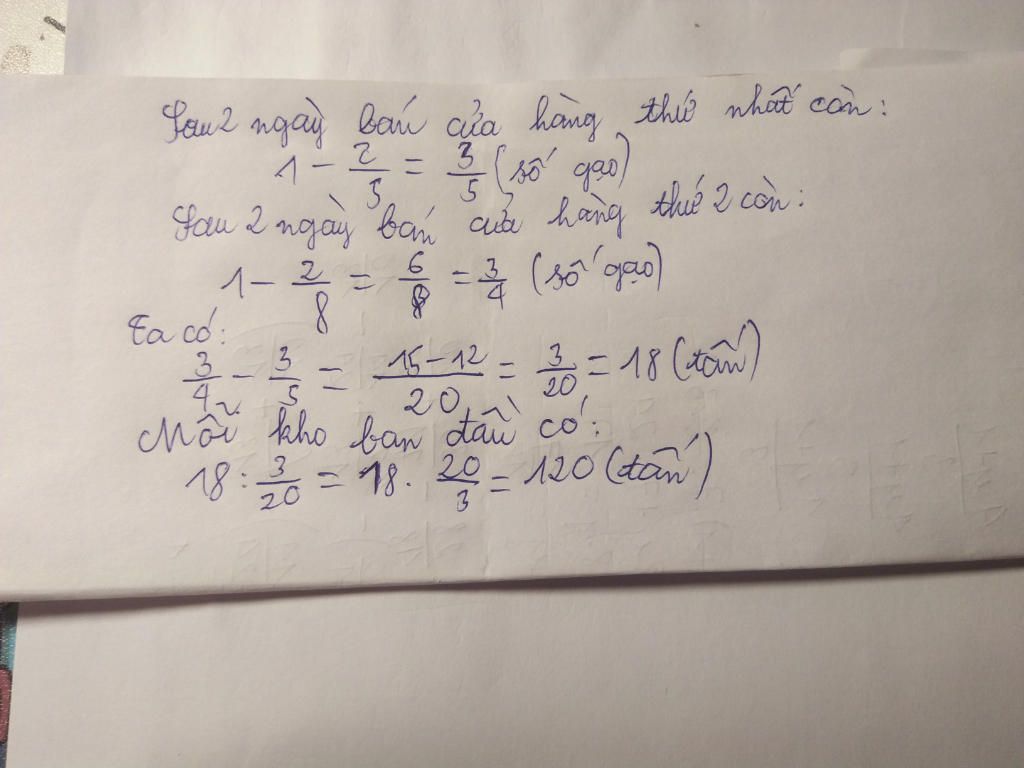 Sau 2 ngày bán cửa hàng thứ nhất còn:
1 - 2/5 = 3/5 (số gạo)
Sau 2 ngày bán cửa hàng thứ 2 còn:
1 - 2/8 = 6/8 = 3/4 (số gạo)
Ta có:
3/4 - 3/5 = 15-12/20 = 3/20 = 18 (tấn)
Mỗi kho ban đầu có:
18 : 3/20 = 18 . 20/3 = 120 (tấn)